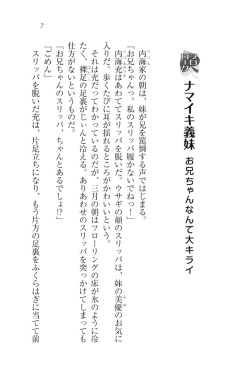 7
ナマイキ義妹 お兄ちゃんなんて大キライ
内海家の朝は、妹が兄を罵倒する声ではじまる。
「お兄ちゃんっ。私のスリッパ履かないでよっ」
内海充はあわててスリッパを脱いだ。ウサギの顔のスリッパは、妹の美優のお気に
入りだ。歩くたびに耳が揺れるところがかわいいと言っている。
それは充だってわかっているのだが、三月の朝はフローリングの床が氷のように冷
たく、裸足の足裏がじぃんと冷える。ありあわせのスリッパを突っかけてしまっても
仕方がないというものだ。
「お兄ちゃんのスリッパ、ちゃんとあるでしょ⁉」
「ごめん」
スリッパを脱いだ充は、片足立ちになり、もう片方の足裏をふくらはぎに当てて前